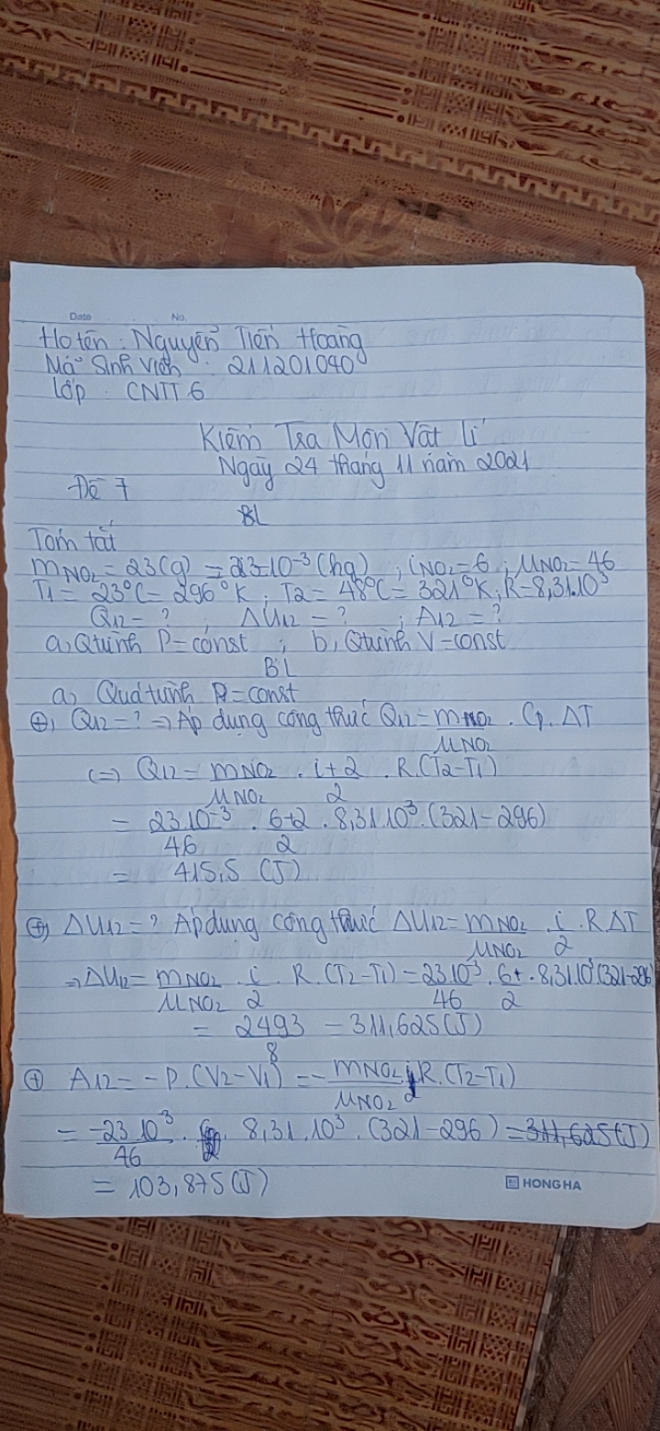 Date No.
Họ tên: Nguyễn Tiến Hoàng
Mã Sinh Viên: 211201040
Lớp: CNTT 6
Kiểm Tra Môn Vật Lí
Ngày 24 tháng 11 năm 2021
Đề 7
BL
Tóm tắt
m_NO2 = 23(g) = 23.10^-3 (kg), i_NO2 = 6, μ_NO2 = 46
T1 = 23°C = 296°K, T2 = 48°C = 321°K, R = 8,31.10^3
Q12 = ?, ΔU12 = ?, A12 = ?
a, Qtrình P = const; b, Qtrình V = const
BL
a, Quá trình P = const
⊕, Q12 = ? => Áp dụng công thức Q12 = m_NO2/μ_NO2 . Cp. ΔT
<=> Q12 = m_NO2/μ_NO2 . i+2/2 . R.(T2-T1)
= 23.10^-3/46 . 6+2/2 . 8,31.10^3.(321-296)
= 415,5 (J)
⊕, ΔU12 = ? Áp dụng công thức ΔU12 = m_NO2/μ_NO2 . i/2 . RΔT
=> ΔU12 = m_NO2/μ_NO2 . i/2 . R.(T2-T1) = 23.10^-3/46 . 6/2 . 8,31.10^3(321-296)
= 2493/8 = 311,625(J)
⊕ A12 = -P.(V2-V1) = - m_NO2/μ_NO2 . R.(T2-T1)
= -23.10^-3/46 . 8,31.10^3.(321-296) = 311,625(J)
= 103,875(J)
HONG HA